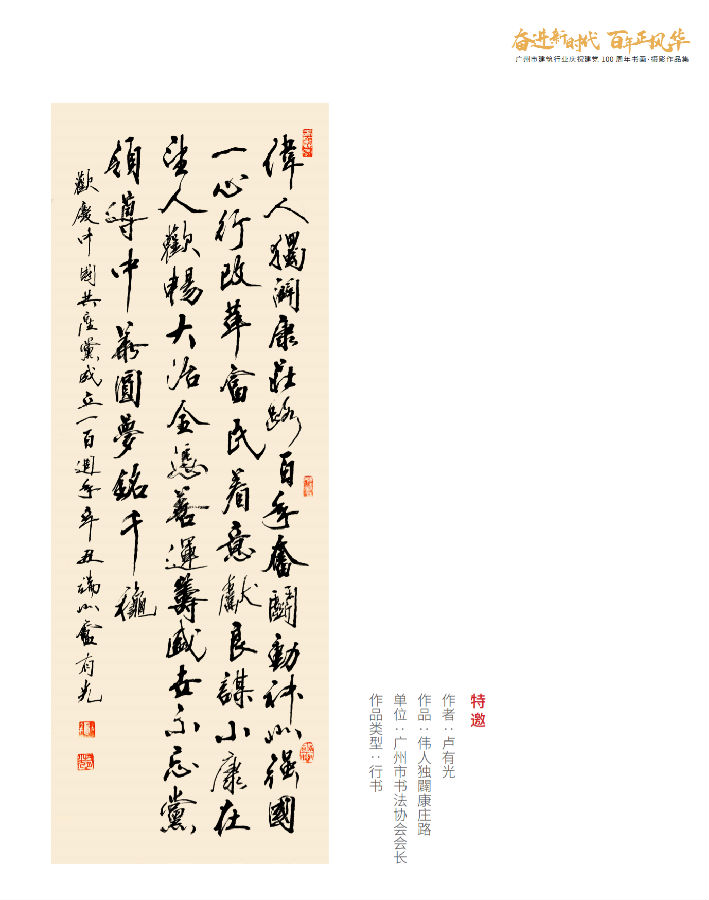 奋进新时代 百年正风华
广州市建筑行业庆祝建党 100 周年书画·摄影作品集
偉人獨闢康莊路百年奮鬪動神州強國
一心行改革富民着意獻良謀小康在
望人歡暢大治全憑善運籌盛世不忘黨
領導中華圓夢銘千秋
歡慶中國共產黨成立一百週年辛丑端州盧有光
特邀
作者：卢有光
作品：伟人独闢康庄路
单位：广州市书法协会会长
作品类型：行书